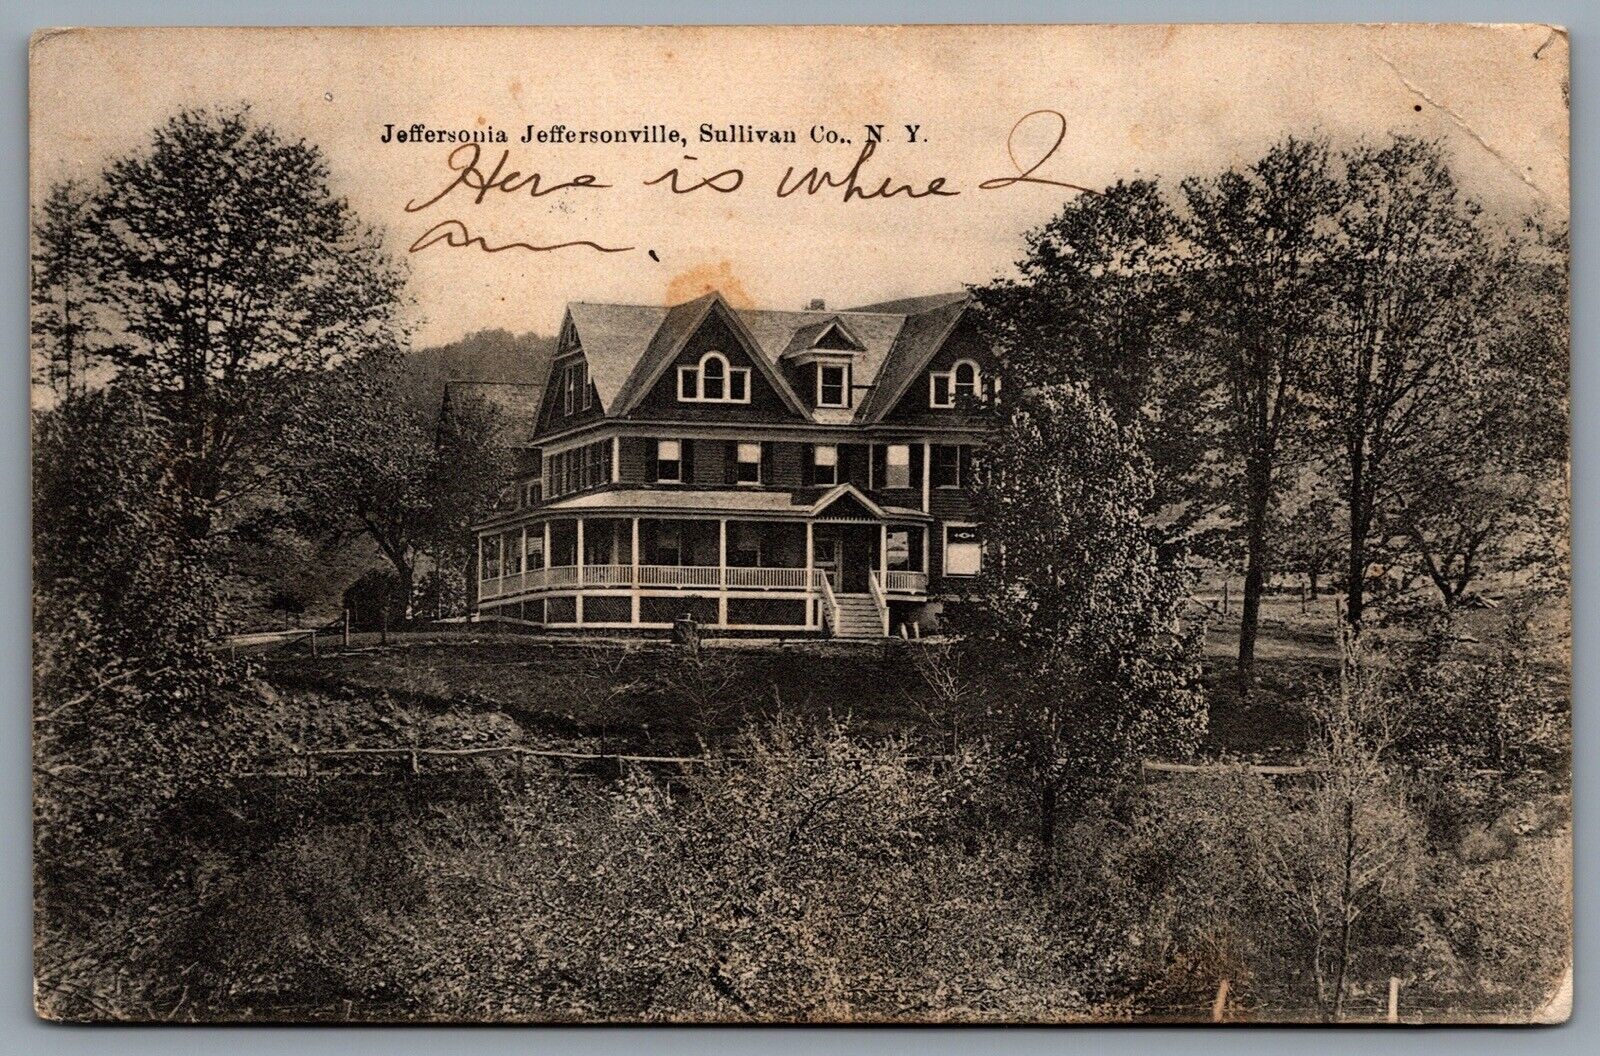 Jeffersonia Jeffersonville, Sullivan Co., N. Y.
Here is where I
am.